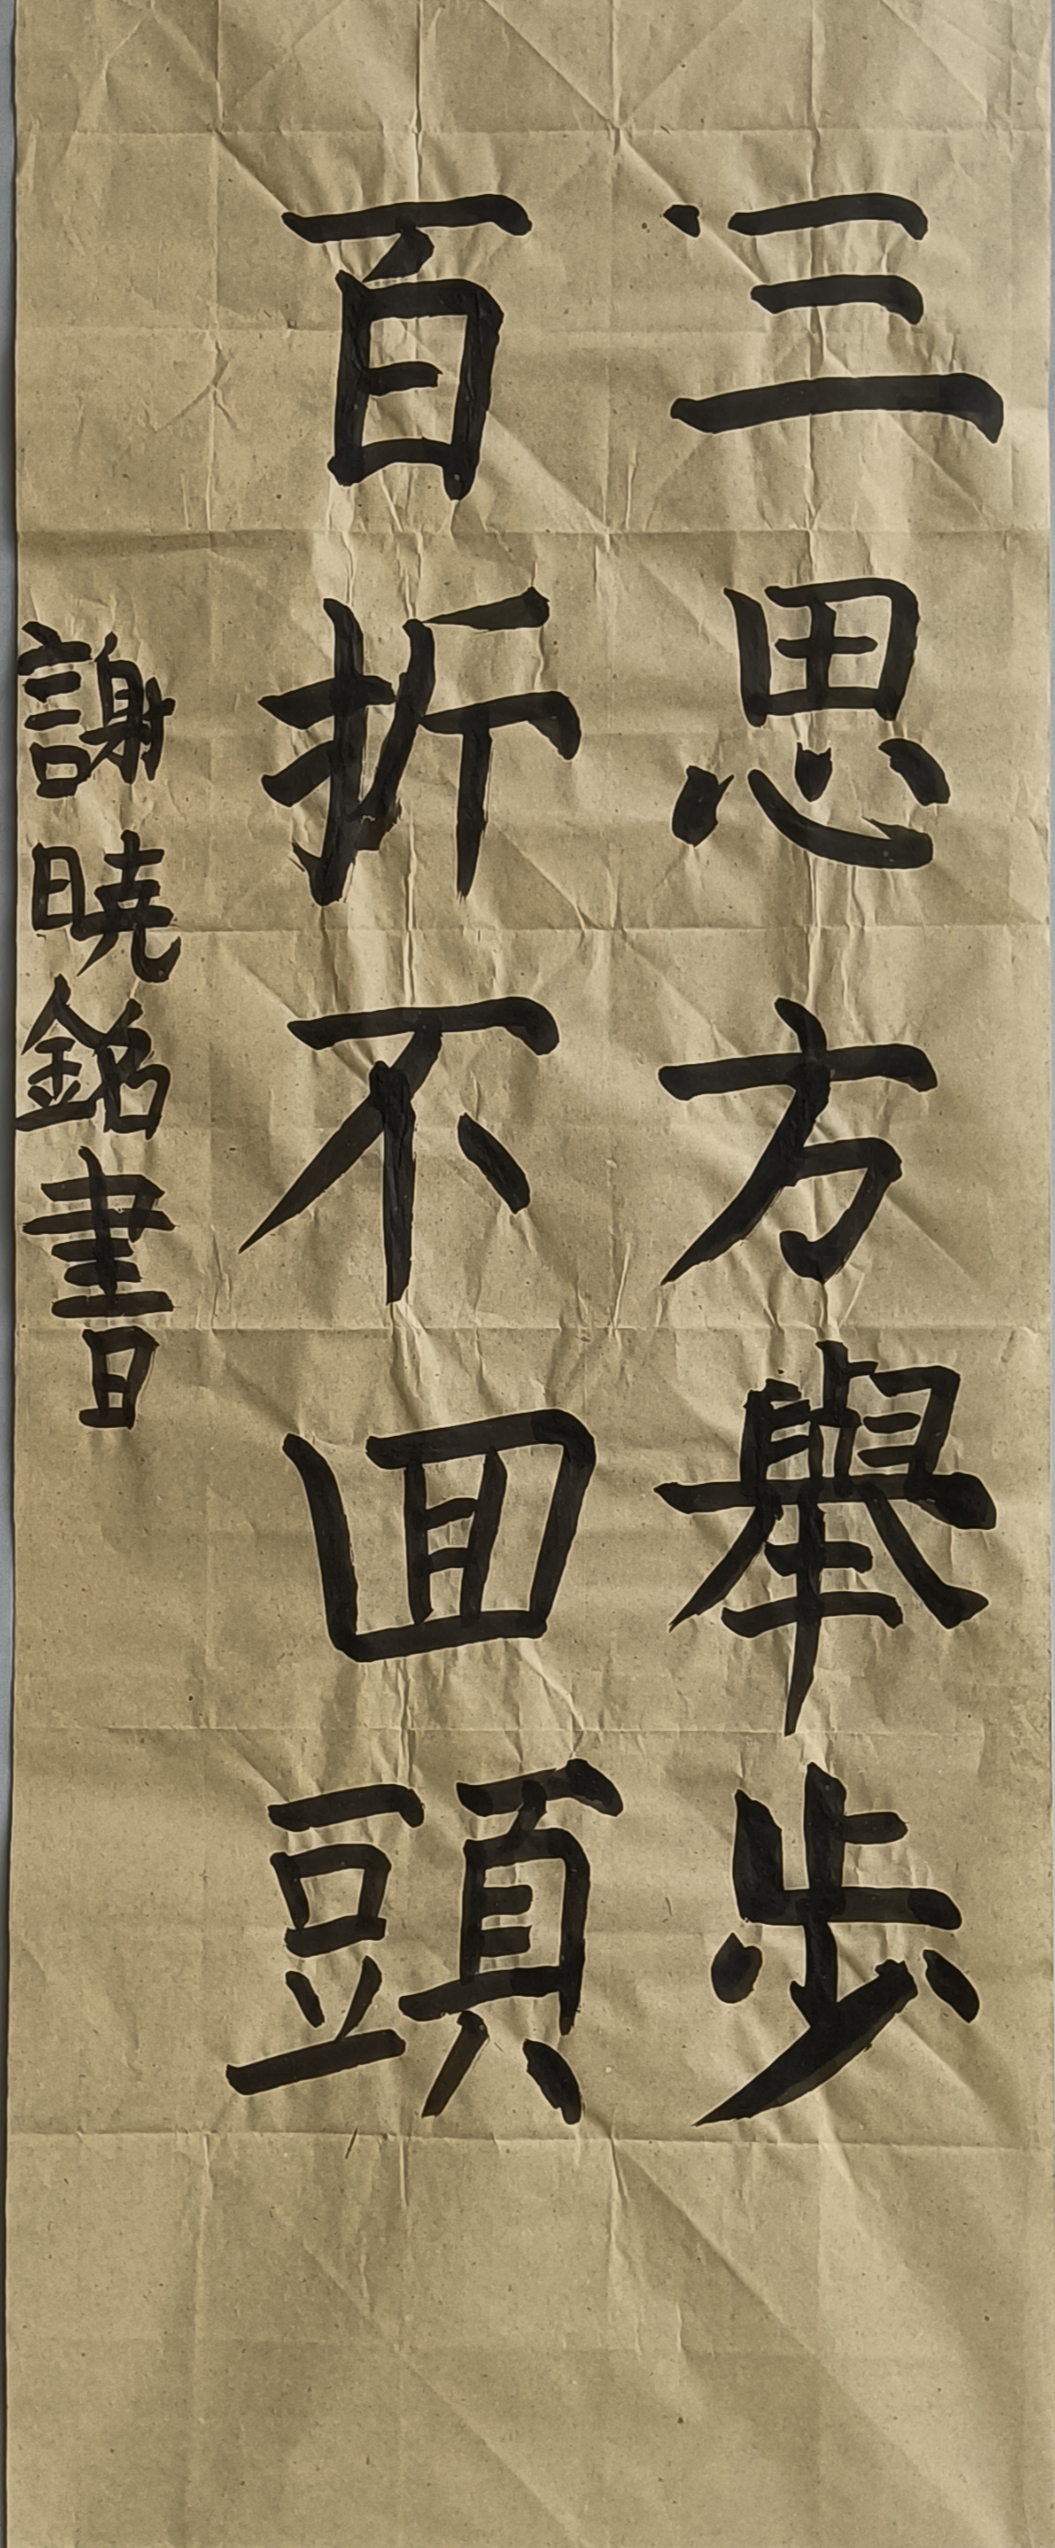 三思方舉步
百折不回頭
謝曉銘書